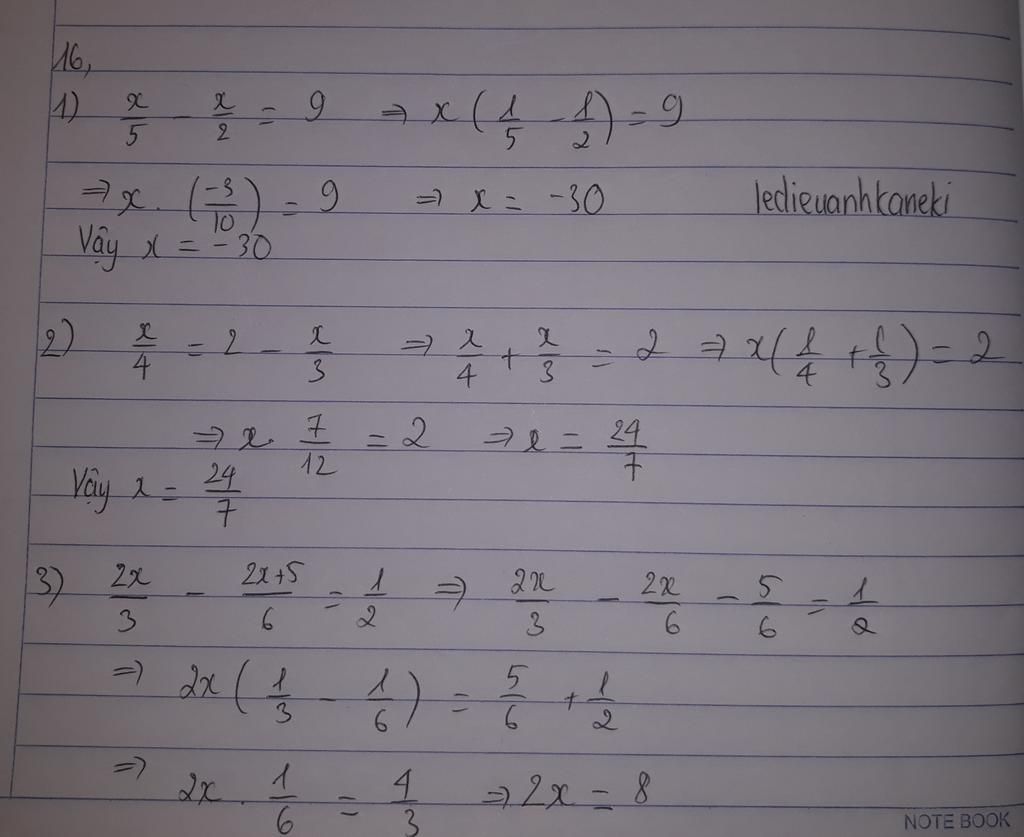 16,
1) x/5 - x/2 = 9 => x(1/5 - 1/2) = 9
=> x. (-3/10) = 9 => x = -30 ledieuanhkaneki
Vậy x = -30
2) x/4 = 2 - x/3 => x/4 + x/3 = 2 => x(1/4 + 1/3) = 2
=> x. 7/12 = 2 => x = 24/7
Vậy x = 24/7
3) 2x/3 - 2x+5/6 = 1/2 => 2x/3 - 2x/6 - 5/6 = 1/2
=> 2x(1/3 - 1/6) = 5/6 + 1/2
=> 2x . 1/6 = 4/3 => 2x = 8
NOTE BOOK